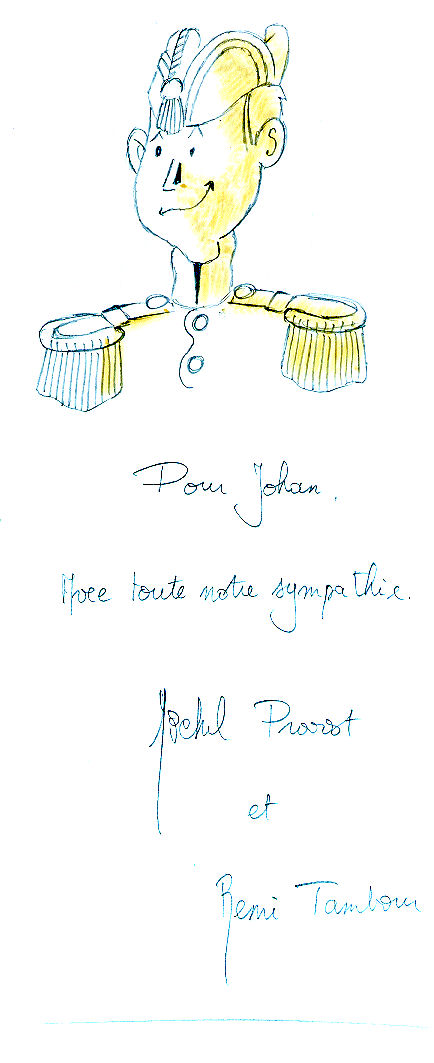 Pour Johan.
Avec toute notre sympathie.
Michel Provost
et
Remi Tambour